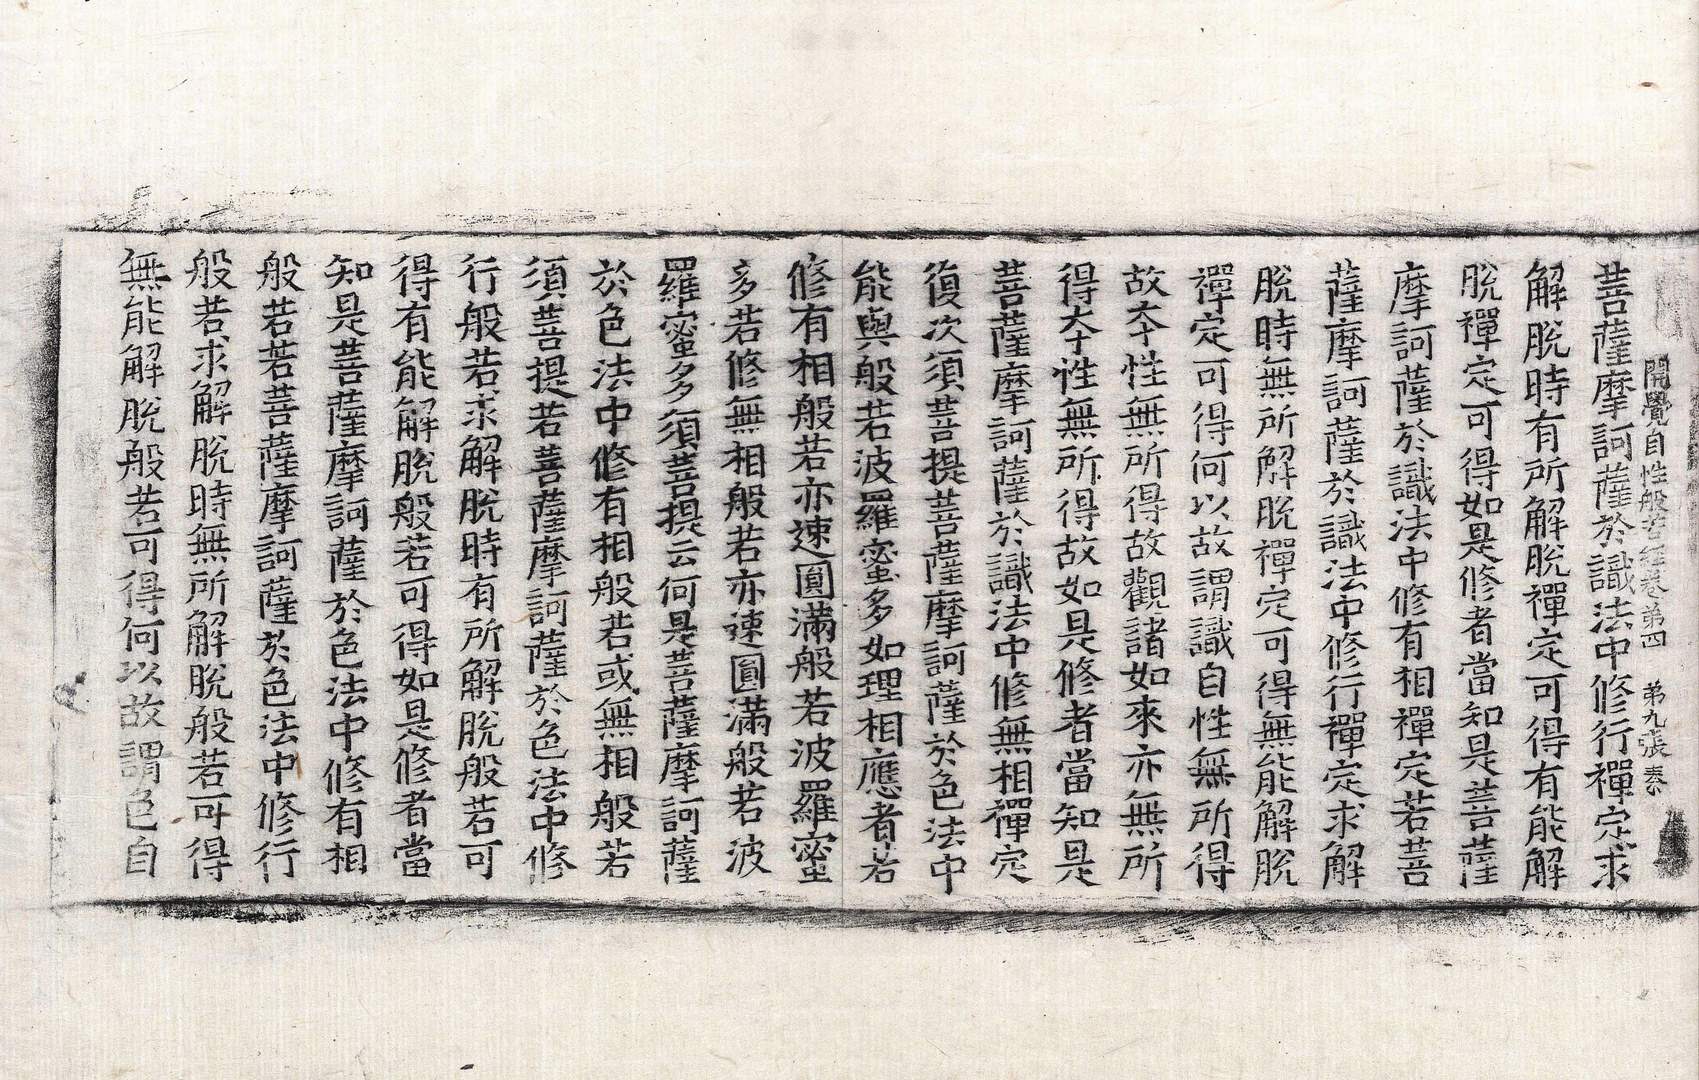 開覺自性般若經卷第四　第九張　秦
菩薩摩訶薩於識法中修行禪定求
解脫時有所解脫禪定可得有能解
脫禪定可得如是修者當知是菩薩
摩訶薩於識法中修有相禪定若菩
薩摩訶薩於識法中修行禪定求解
脫時無所解脫禪定可得無能解脫
禪定可得何以故謂識自性無所得
故夲性無所得故觀諸如來亦無所
得夲性無所得故如是修者當知是
菩薩摩訶薩於識法中修無相禪定
復次須菩提菩薩摩訶薩於色法中
能與般若波羅蜜多如理相應者若
修有相般若亦速圓滿般若波羅蜜
多若修無相般若亦速圓滿般若波
羅蜜多須菩提云何是菩薩摩訶薩
於色法中修有相般若或無相般若
須菩提若菩薩摩訶薩於色法中修
行般若求解脫時有所解脫般若可
得有能解脫般若可得如是修者當
知是菩薩摩訶薩於色法中修有相
般若若菩薩摩訶薩於色法中修行
般若求解脫時無所解脫般若可得
無能解脫般若可得何以故謂色自